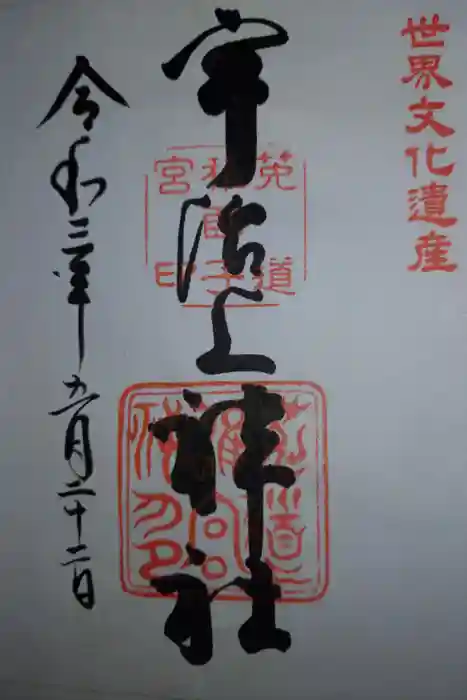 世界文化遺産
宇治上神社
菟道
宮印
令和三年五月二十二日